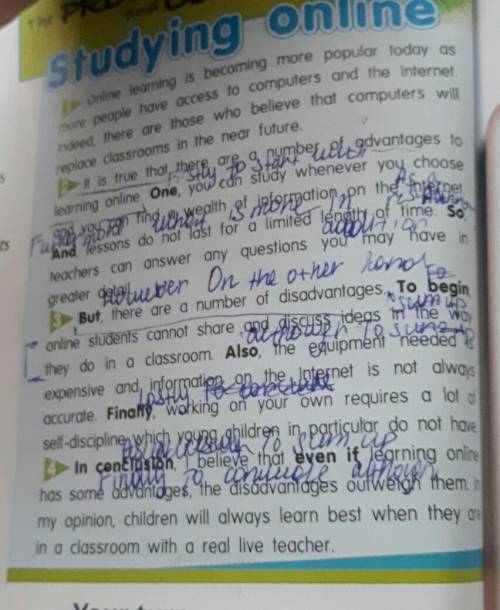 The PR
and
Studying online
1 Online learning is becoming more popular today as
more people have access to computers and the Internet.
Indeed, there are those who believe that computers will
replace classrooms in the near future.
2 It is true that there are a number of advantages to
to start with
learning online. One, you can study whenever you choose
and you can find a wealth of information on the Internet.
what is more In
And, lessons do not last for a limited length of time. So,
addition
teachers can answer any questions you may have in
greater detail.
However On the other hand
3 But, there are a number of disadvantages. To begin,
sum up
online students cannot share and discuss ideas in the way
although To sum up
they do in a classroom. Also, the equipment needed is
expensive and information on the Internet is not always
accurate. Finally, working on your own requires a lot of
self-discipline which young children in particular do not have.
To sum up
4 In conclusion, I believe that even if learning online
Finally To conclude although
has some advantages, the disadvantages outweigh them. In
my opinion, children will always learn best when they are
in a classroom with a real live teacher.